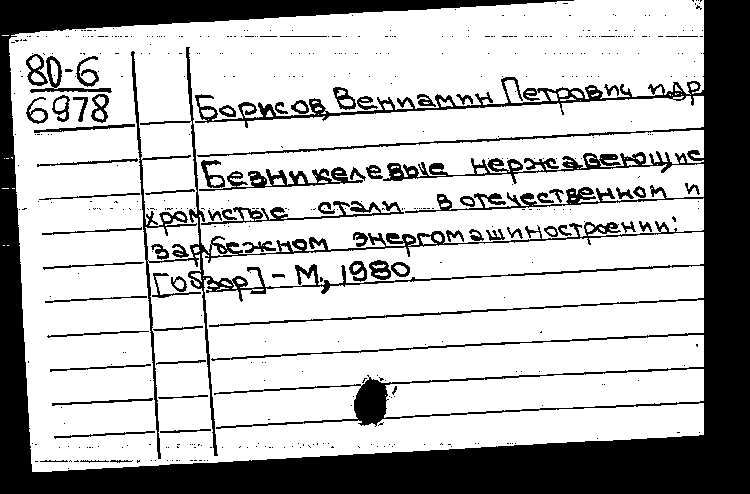 80-6
6978
Борисов, Вениамин Петрович и др.
Безникелевые нержавеющие
хромистые стали в отечественном и
зарубежном энергомашиностроении:
[Обзор] - М., 1980.